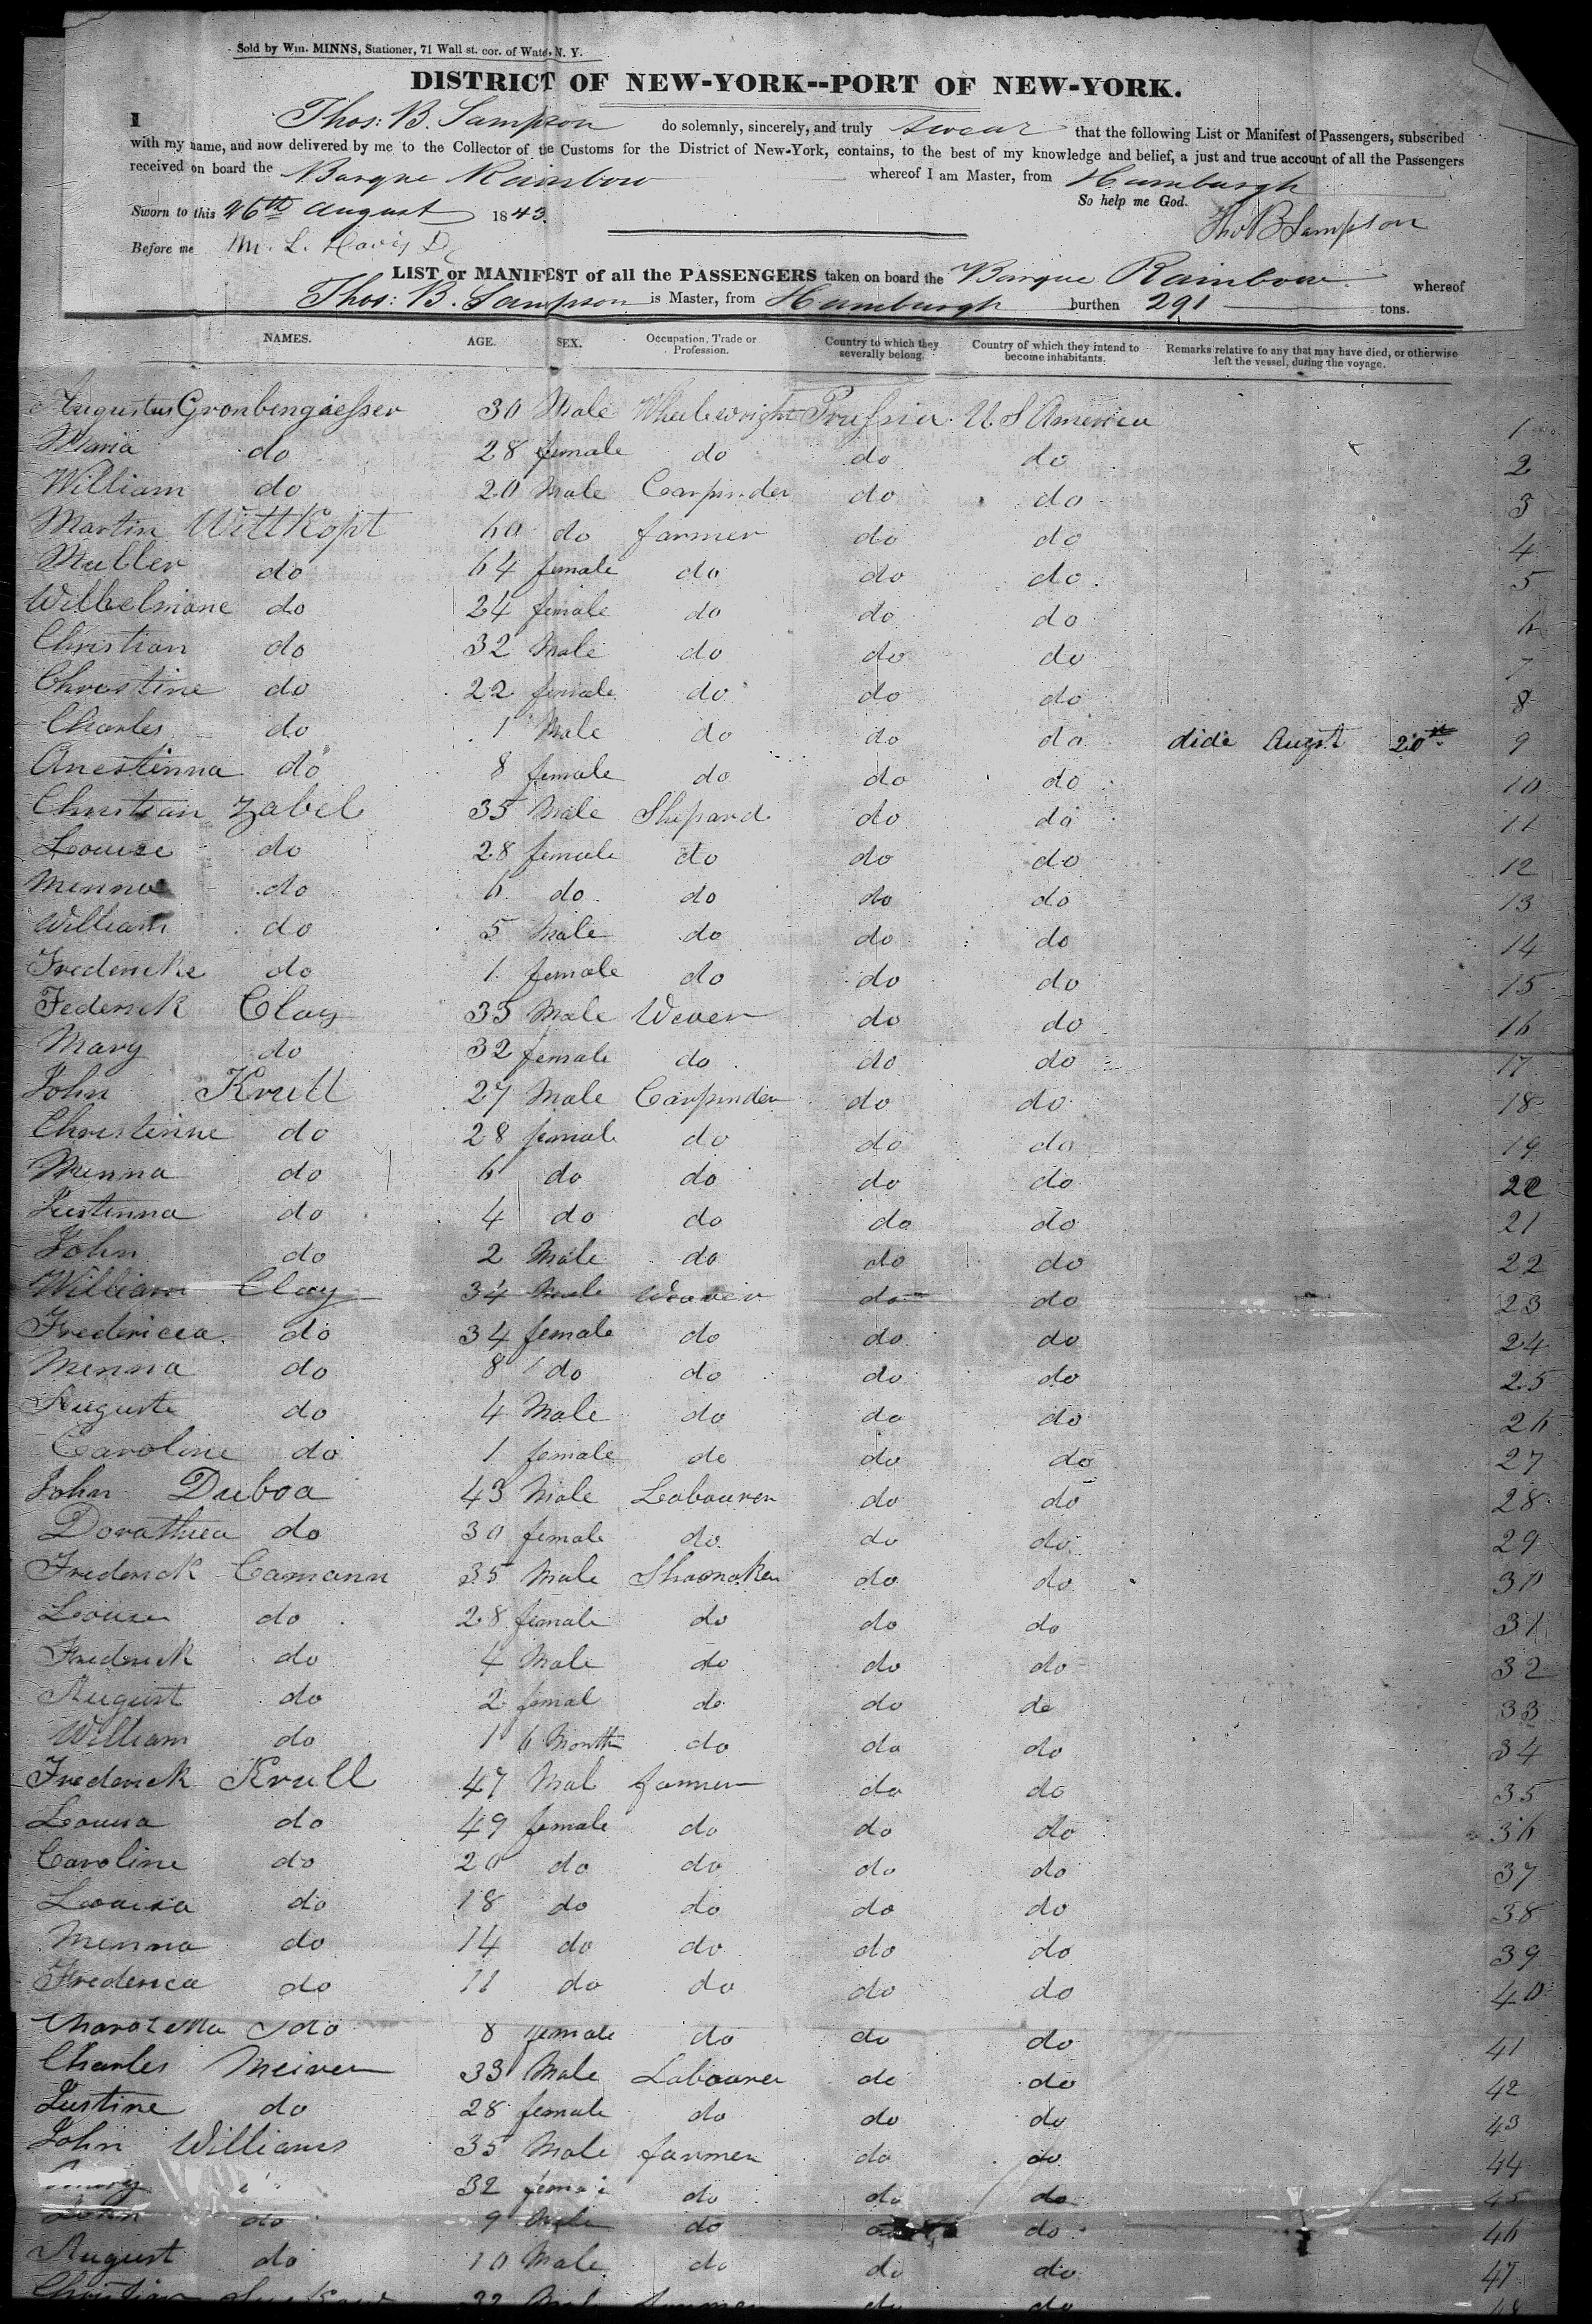 Sold by Wm. MINNS, Stationer, 71 Wall st. cor. of Water, N. Y.
DISTRICT OF NEW-YORK--PORT OF NEW-YORK.
I Thos: B. Sampson do solemnly, sincerely, and truly swear that the following List or Manifest of Passengers, subscribed
with my name, and now delivered by me to the Collector of the Customs for the District of New-York, contains, to the best of my knowledge and belief, a just and true account of all the Passengers
received on board the Barque Rainbow whereof I am Master, from Hamburgh
So help me God.
Sworn to this 26th August 1843. Tho B Sampson
Before me M. L. Davis
LIST or MANIFEST of all the PASSENGERS taken on board the Barque Rainbow whereof
Thos: B. Sampson is Master, from Hamburgh burthen 291 tons.
NAMES. AGE. SEX. Occupation, Trade or Profession. Country to which they severally belong. Country of which they intend to become inhabitants. Remarks relative to any that may have died, or otherwise left the vessel, during the voyage.
Augustus 30 Male Wheelwright Prussia U S America 1
Maria do 28 female do do do 2
William do 20 Male Carpinder do do 3
Martin Wittkopt 60 do farmer do do 4
Muller do 64 female do do do 5
Wilhelmane do 24 female do do do 6
Christian do 32 Male do do do 7
Christine do 22 female do do do 8
Charles do 1 Male do do do dide Augst 20th 9
Anestinna do 8 female do do do 10
Christian Zabel 35 Male Shepard do do 11
Louise do 28 female do do do 12
Menna do 6 do do do do 13
William do 5 Male do do do 14
Fredericke do 1 female do do do 15
Federick Clay 35 Male Wever do do 16
Mary do 32 female do do do 17
John Krull 27 Male Carpinder do do 18
Christinne do 28 female do do do 19
Menna do 6 do do do do 20
Justinna do 4 do do do do 21
John do 2 Male do do do 22
William Clay 34 Male Weaver do do 23
Fredericca do 34 female do do do 24
Menna do 8 do do do do 25
Auguste do 4 Male do do do 26
Caroline do 1 female do do do 27
John Duboa 43 Male Labourer do do 28
Dorathea do 30 female do do do 29
Frederick Camann 35 Male Shoomaker do do 30
Louise do 28 female do do do 31
Fredrick do 4 Male do do do 32
August do 2 femal do do do 33
William do 1 6 Month do do do 34
Frederick Krull 47 Mal farmer do do 35
Louisa do 49 female do do do 36
Caroline do 20 do do do do 37
Louisa do 18 do do do do 38
Menna do 14 do do do do 39
Frederica do 11 do do do do 40
do 8 female do do do 41
Charles Meiner 33 Male Labourer do do 42
Justine do 28 female do do do 43
John Williams 35 Male farmer do do 44
Mary 32 do do do 45
John do 9 Male do do do 46
August do 10 Male do do do 47
Christian 32 Male farmer do do 48